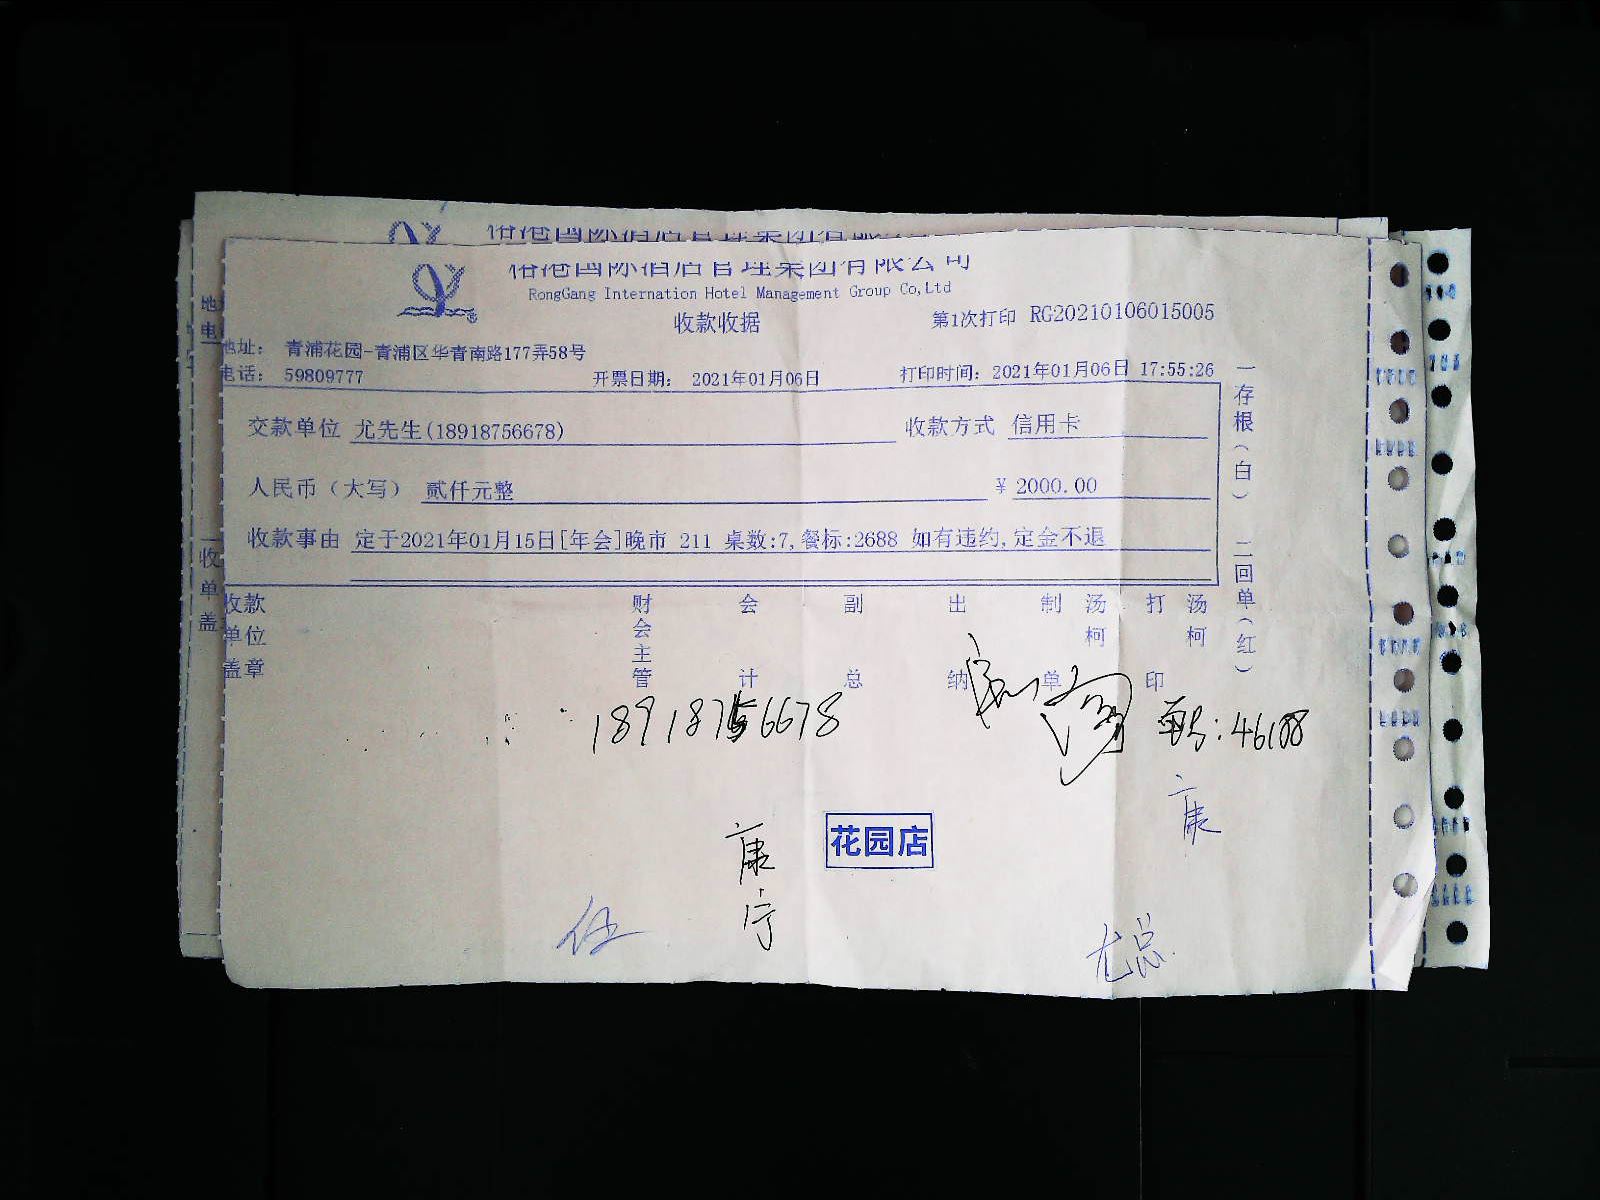 港国际酒店管理集团有限公司
RongGang Internation Hotel Management Group Co,Ltd
收款收据
第1次打印 RG20210106015005
地址： 青浦花园-青浦区华青南路177弄58号
电话： 59809777
开票日期： 2021年01月06日
打印时间：2021年01月06日 17:55:26
交款单位 尤先生(18918756678)
收款方式 信用卡
人民币（大写） 贰仟元整
¥ 2000.00
收款事由 定于2021年01月15日[年会]晚市 211 桌数:7,餐标:2688 如有违约,定金不退
一存根（白） 二回单（红）
收款单位盖章
财会主管
会计
副总
出纳
制单 汤柯
打印 汤柯
18918756678
:46188
康
花园店
康宁
伍
尤总